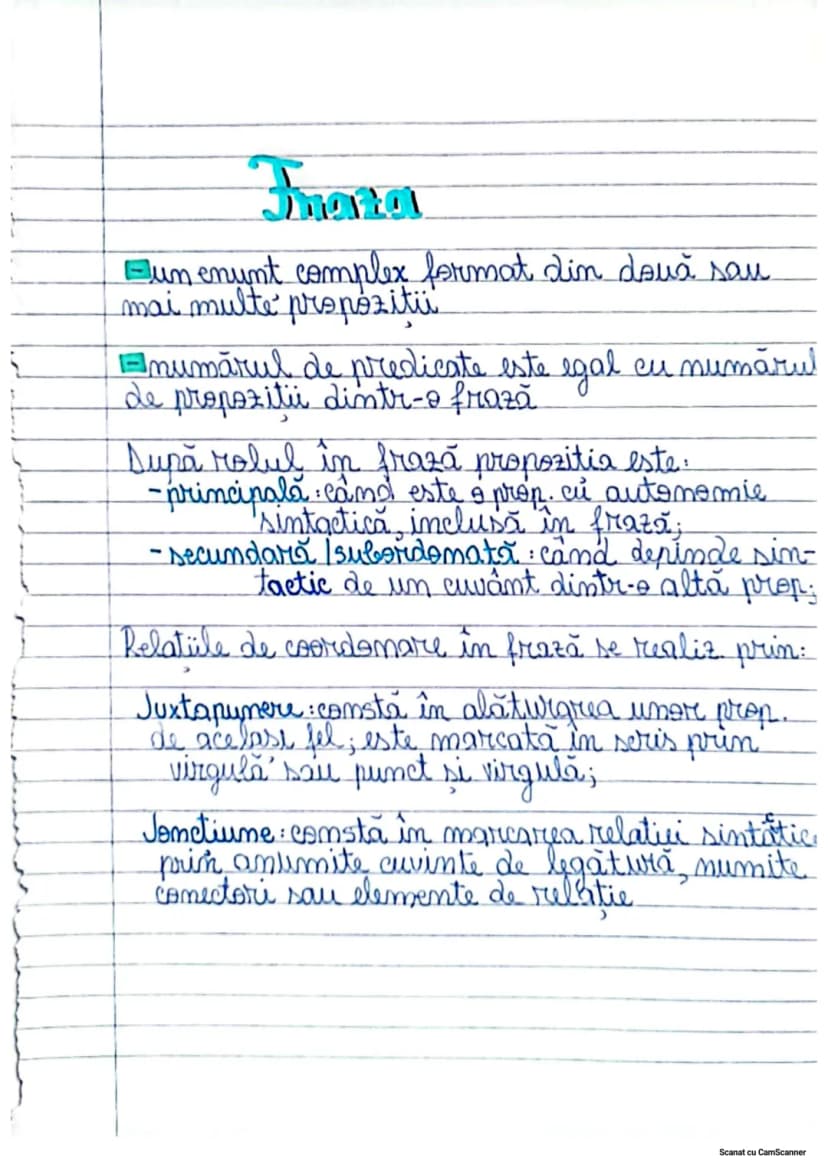 Fraza
- un enunt complex format din două sau
mai multe propoziții
- numărul de predicate este egal cu numărul
de propoziții dintr-o frază
După rolul în frază propozitia este:
- principală: când este o prop. cu autonomie
sintactică, inclusă în frază;
- secundară /subordonată: când depinde sin-
tactic de un cuvânt dintr-o altă prop;
Relațiile de coordonare în frază se realiz prin:
Juxtapunere: constă în alăturarea unor prop.
de același fel; este marcată în scris prin
virgulă sau punct și virgulă;
Joncțiune: constă în marcarea relatiei sintactice
prin anumite cuvinte de legătură, numite
conectori sau elemente de relație
Scanat cu CamScanner